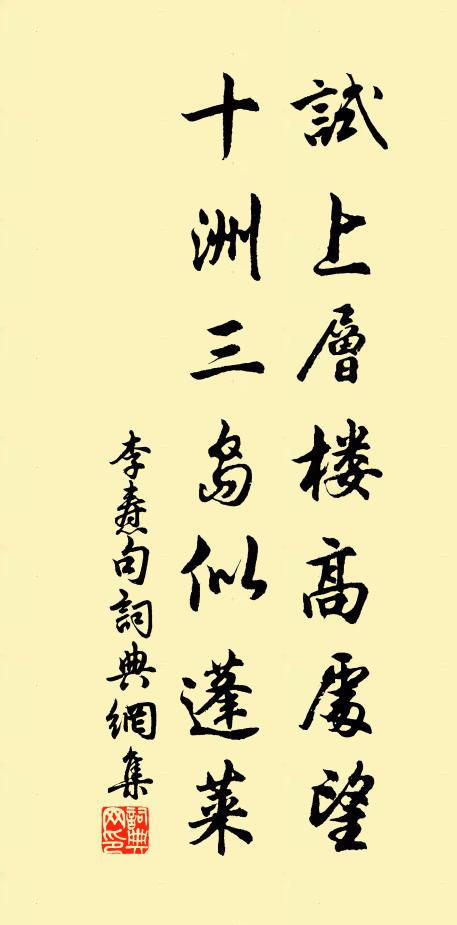 試上層楼高處望
十洲三島似蓬萊
李燾句詞典網集
詞典網印